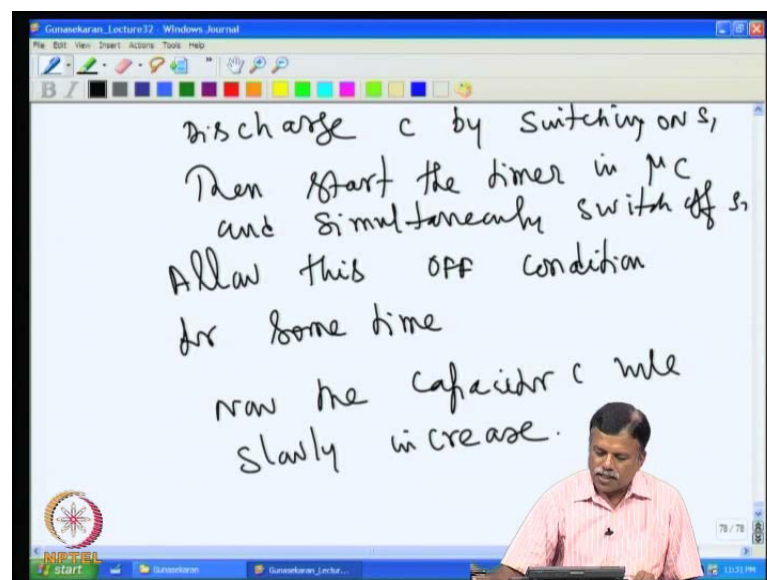 Gunasekaran_Lecture32 - Windows Journal
File Edit View Insert Actions Tools Help
B I
Discharge c by switching on S1
Then start the timer in μC
and simultaneously switch off S1
Allow this OFF condition
for some time
Now the capacitor c
slowly increase.
78 / 78
NPTEL
start Gunasekaran Gunasekaran_Lectur... 11:31 PM